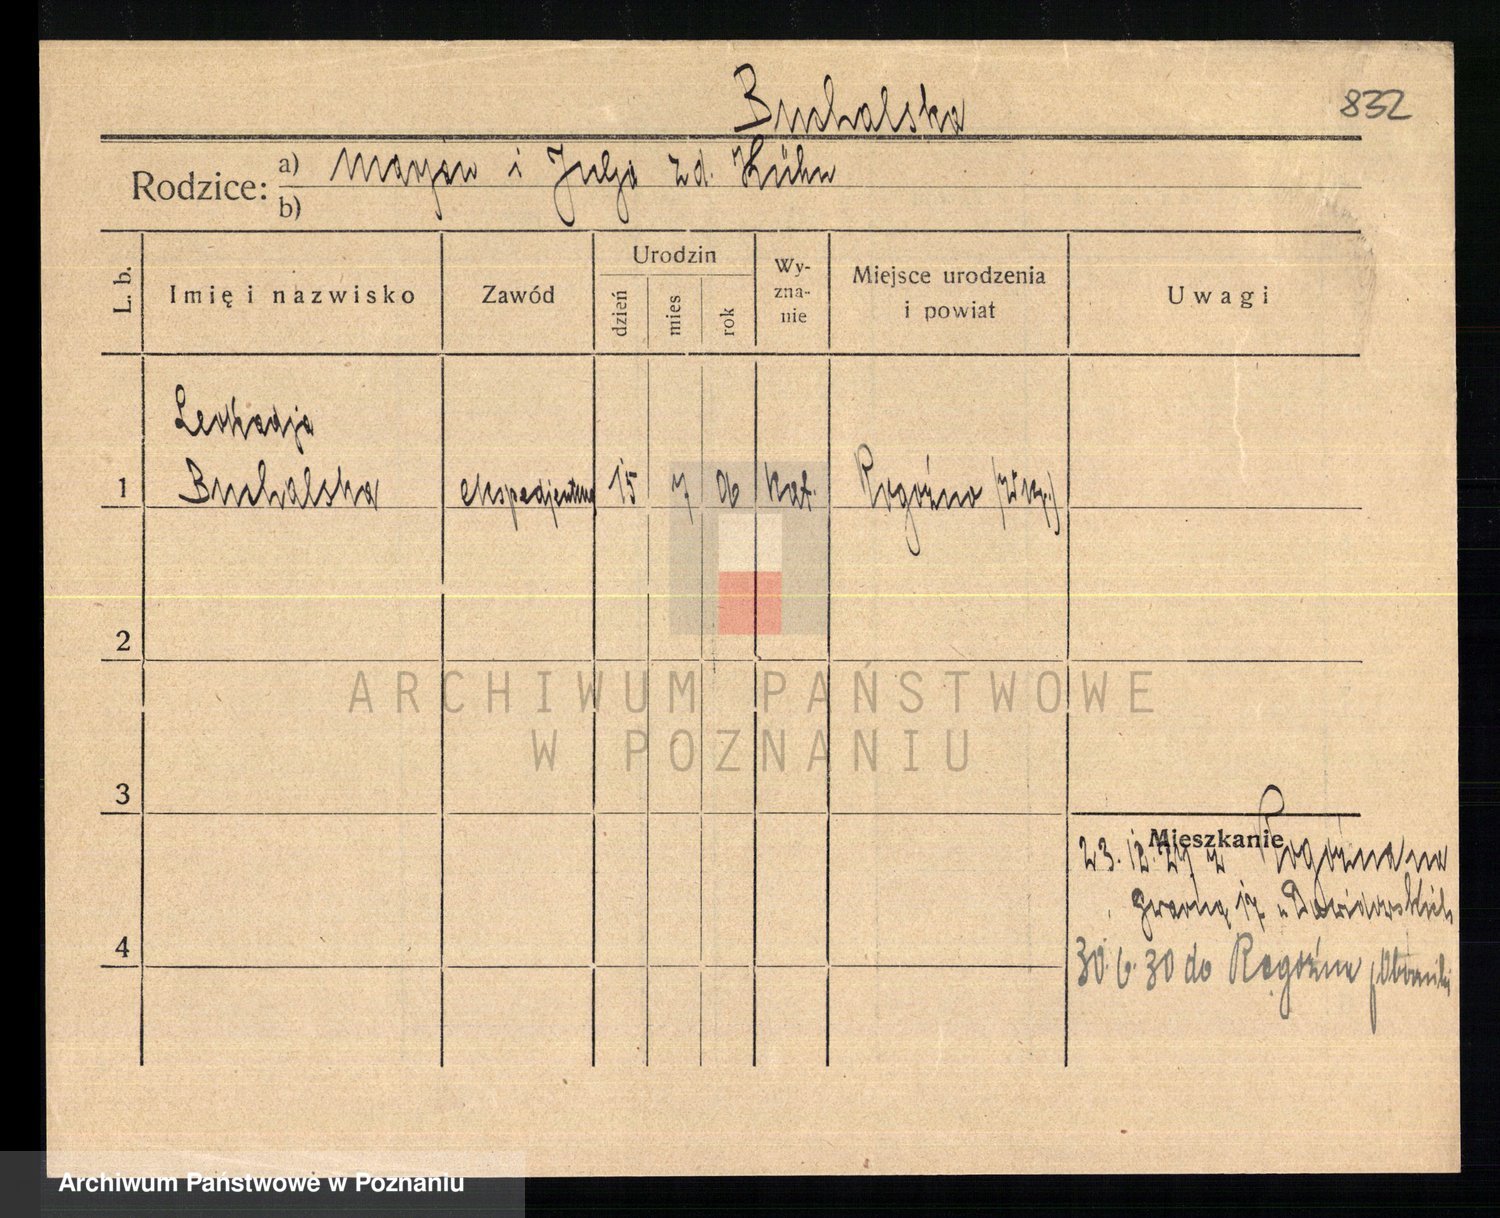 832
Buchalska
Rodzice: a) Marjan i Julja zd. Kühn
b)
L. b. Imię i nazwisko Zawód Urodzin dzień mies rok Wy-zna-nie Miejsce urodzenia i powiat Uwagi
Leokadja
1 Buchalska ekspedjentka 15 7 06 kat. Rogoźno
2
3
4
Mieszkanie
23. 12. 29 z Rogoźna na
17 u Dawidowskich
30. 6. 30 do Rogoźna p Oborniki
ARCHIWUM PAŃSTWOWE
W POZNANIU
Archiwum Państwowe w Poznaniu